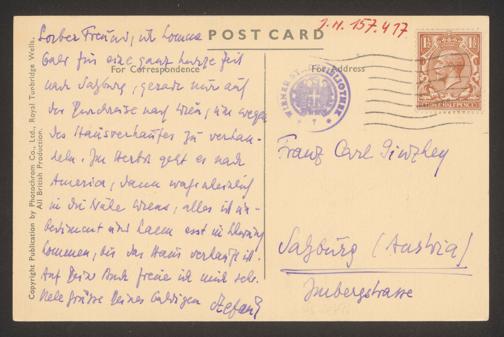 POST CARD
J.N. 157.417
For Correspondence
For Address
Copyright Publication by Photochrom Co., Ltd., Royal Tunbridge Wells.
All British Production.
Lieber Freund, ich komme
bald für eine ganz kurze Zeit
nach Salzburg, gerade nur auf
der Durchreise nach Wien, um wegen
des Hausverkaufes zu verhan-
deln. Im Herbst geht es nach
America, dann wahrscheinlich
in die Nähe Wiens, alles ist un-
bestimmt und kann erst in Ordnung
kommen, bis das Haus verkauft ist.
Auf Dein Buch freue ich mich sehr.
Viele Grüsse Deines
Stefan
WIENER
BIBLIOTHEK
Franz Carl Ginzkey
Salzburg (Austria)
Imbergstrasse